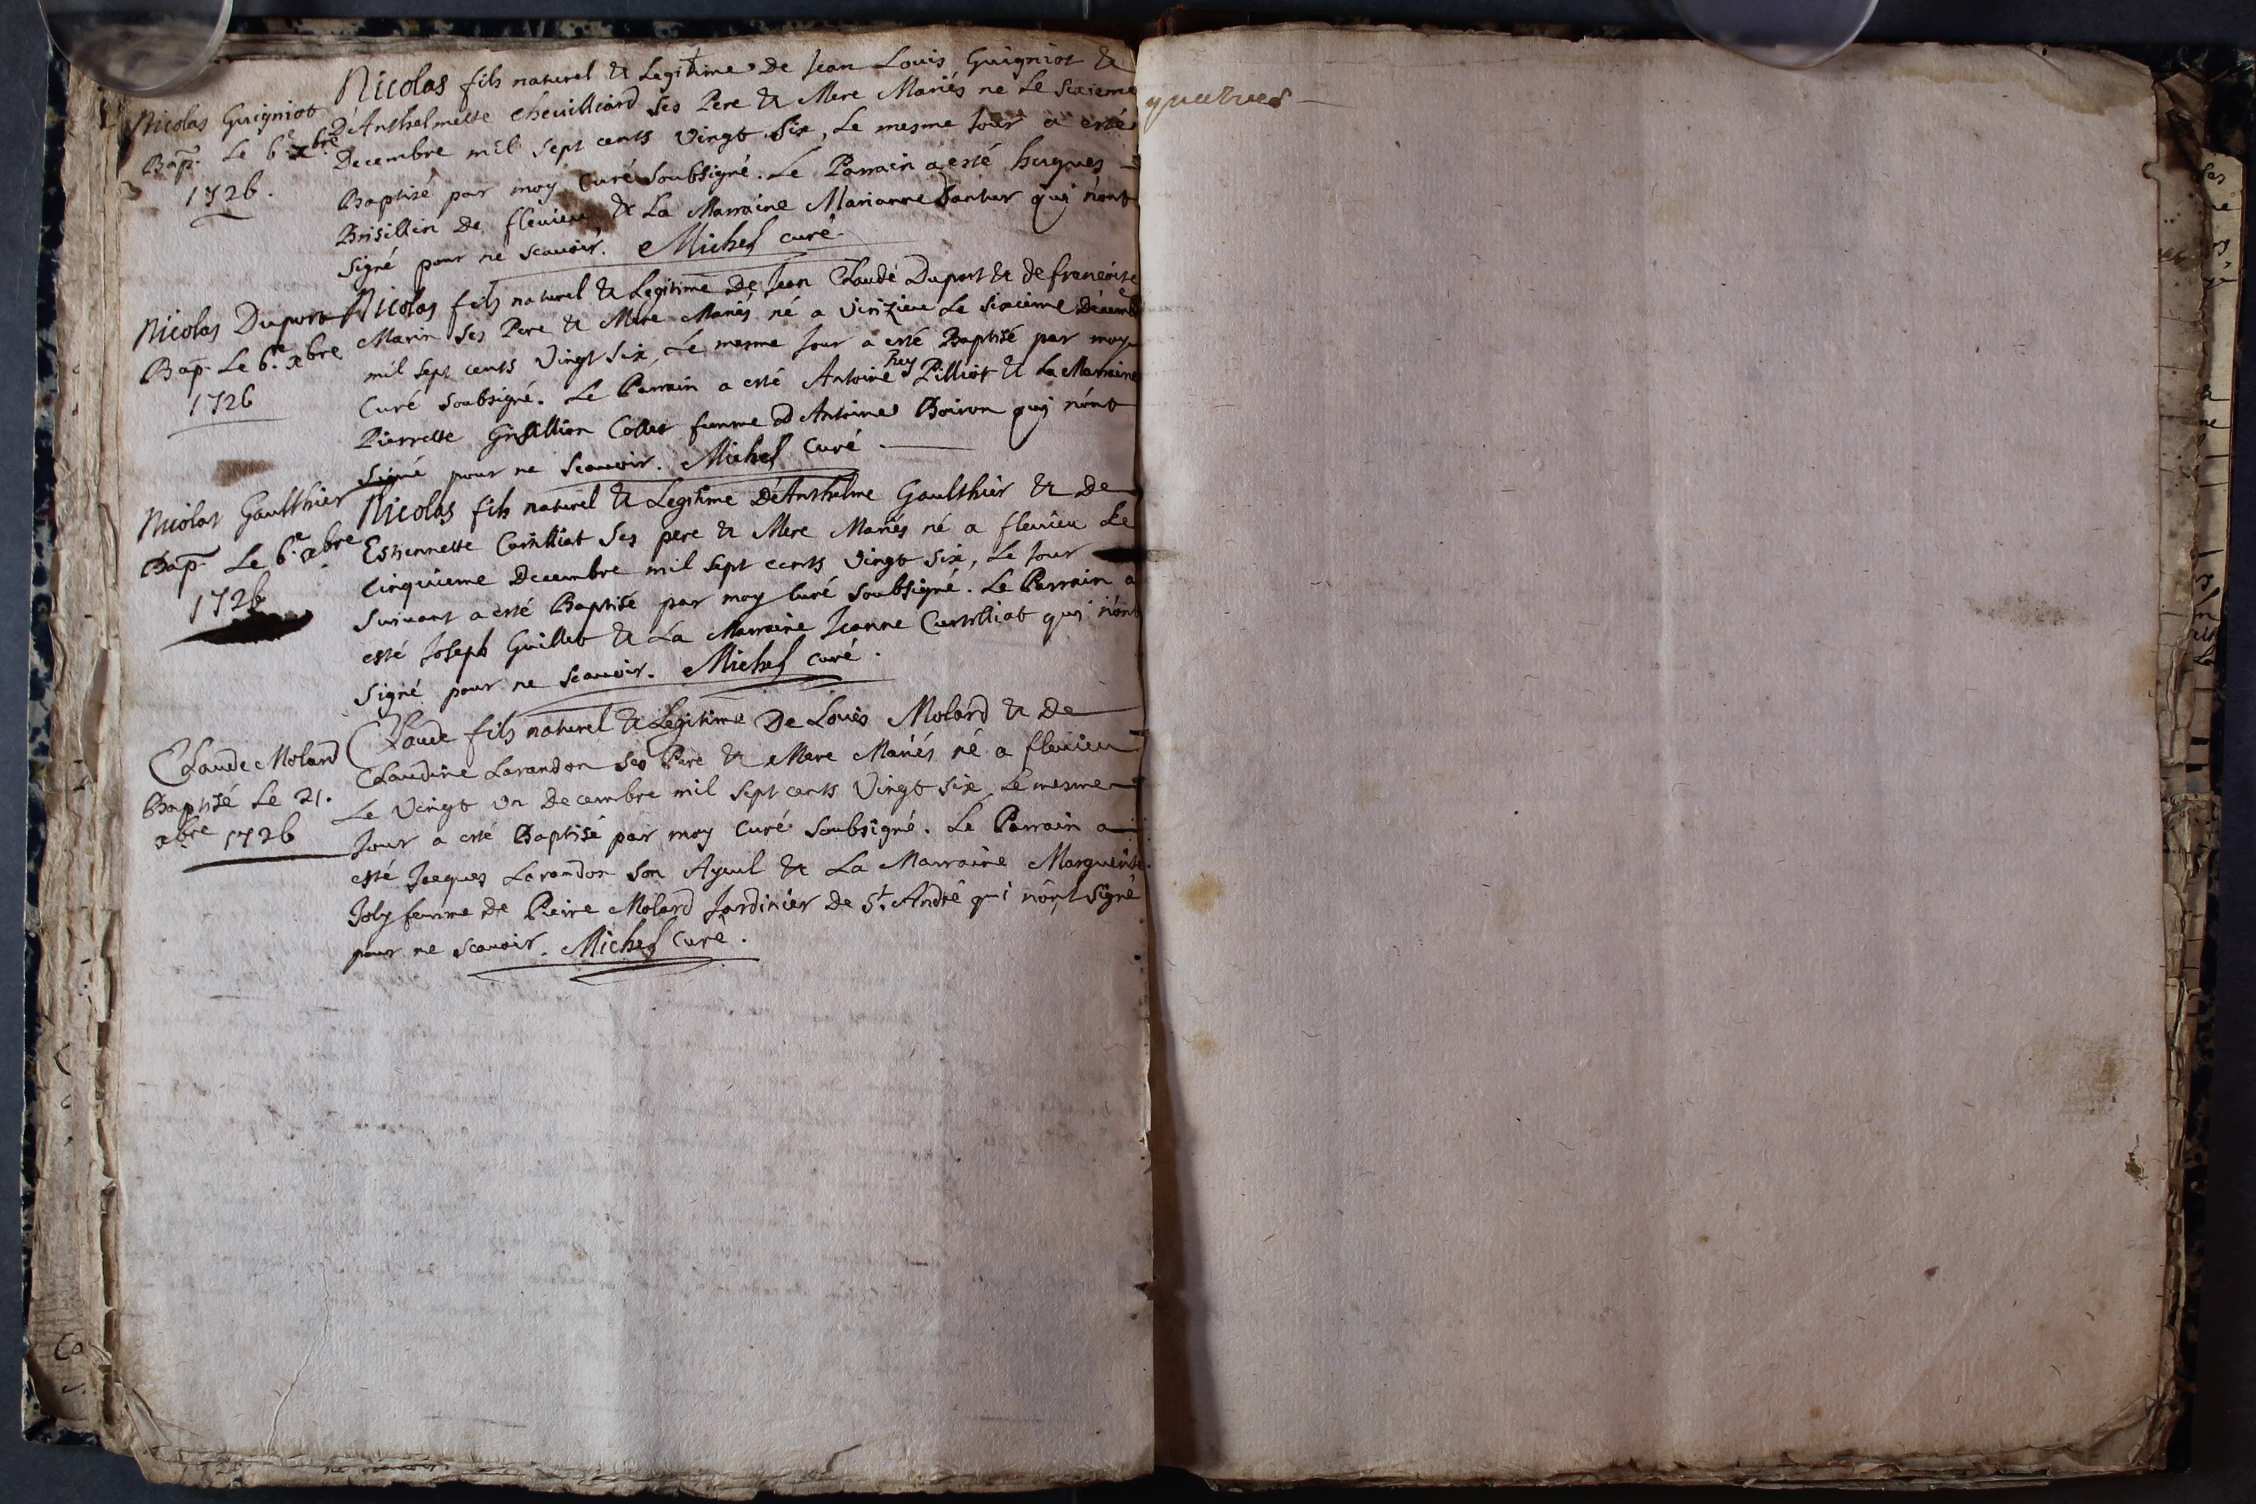 Nicolas Guigniot
Bap. Le 6.e xbre
1726.
Nicolas fils naturel & Legitime De Jean Louis Guigniot &
D'Anthelmette Chevilliard Ses Pere & Mere Mariés né Le Sixieme
Decembre mil Sept cents Vingt Six, Le mesme Jour a esté
Baptisé par moy Curé Soubsigné. Le Parrain a esté hugues
Brisillin De flevieu & La Marraine Marianne qui n'ont
Signé pour ne Scavoir. Michel curé.
Nicolas Duport
Bap. Le 6.e xbre
1726
Nicolas fils naturel & Legitime De Jean Claude Duport & de francoise
Marin Ses Pere & Mere Mariés né a Virizieu Le Sixieme Décemb
mil Sept cents Vingt Six, Le mesme Jour a esté Baptisé par moy
Curé Soubsigné. Le Parrain a esté Antoine Rey Pilliot & La Marraine
Pierrette Collet femme d'Antoine Boiron qui n'ont
Signé pour ne Scavoir. Michel Curé
Nicolas Gaulthier
Bap. Le 6.e xbre
1726
Nicolas fils naturel & Legitime D'Anthelme Gaulthier & De
Estiennette Curtilliat Ses pere & Mere Mariés né a flevieu Le
Cinquieme Decembre mil Sept cents Vingt Six, Le Jour
Suivant a esté Baptisé par moy Curé Soubsigné. Le Parrain a
esté Joseph Guillet & La Marraine Jeanne Curtilliat qui n'ont
Signé pour ne Scavoir. Michel curé.
Claude Molard
Baptisé Le 21.
xbre 1726
Claude fils naturel & Legitime De Louis Molard & De
Claudine Larandon Ses Pere & Mere Mariés né a flevieu
Le Vingt Un Decembre mil Sept cents Vingt Six, Le mesme
Jour a esté Baptisé par moy Curé Soubsigné. Le Parrain a
esté Jacques Larandon Son Ayeul & La Marraine Marguerite
Joly femme De Pierre Molard Jardinier de St. André qui n'ont Signé
pour ne Scavoir. Michel Curé.